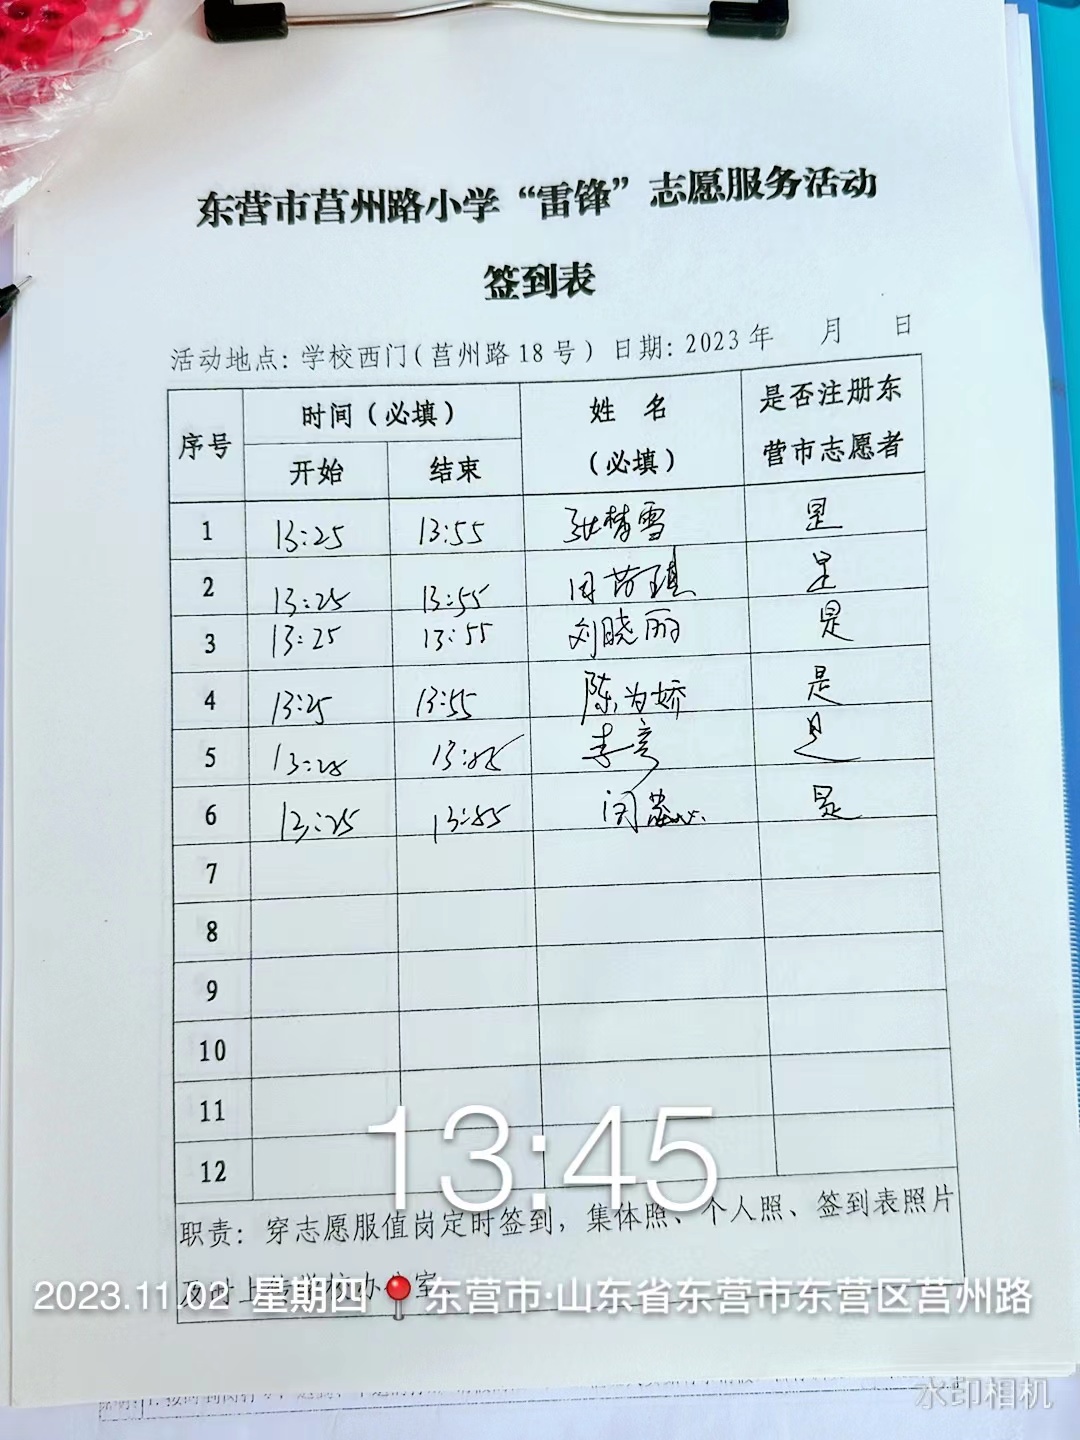 东营市莒州路小学“雷锋”志愿服务活动
签到表
活动地点：学校西门（莒州路18号）日期：2023年 月 日
序号 时间（必填） 姓 名（必填） 是否注册东营市志愿者
开始 结束
1 13:25 13:55 张梦雪 是
2 13:25 13:55 是
3 13:25 13:55 刘晓丽 是
4 13:25 13:55 陈为娇 是
5 13:25 13:55 李彦 是
6 13:25 13:55 闵蕊心 是
7
8
9
10
11
12
13:45
职责：穿志愿服值岗定时签到，集体照、个人照、签到表照片
及时上传学校办公室
2023.11.02 星期四 东营市·山东省东营市东营区莒州路
水印相机